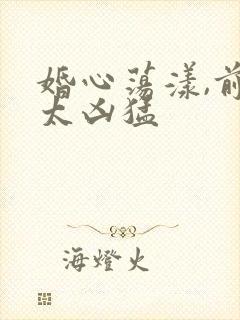 婚心荡漾,前
太凶猛
海燈火